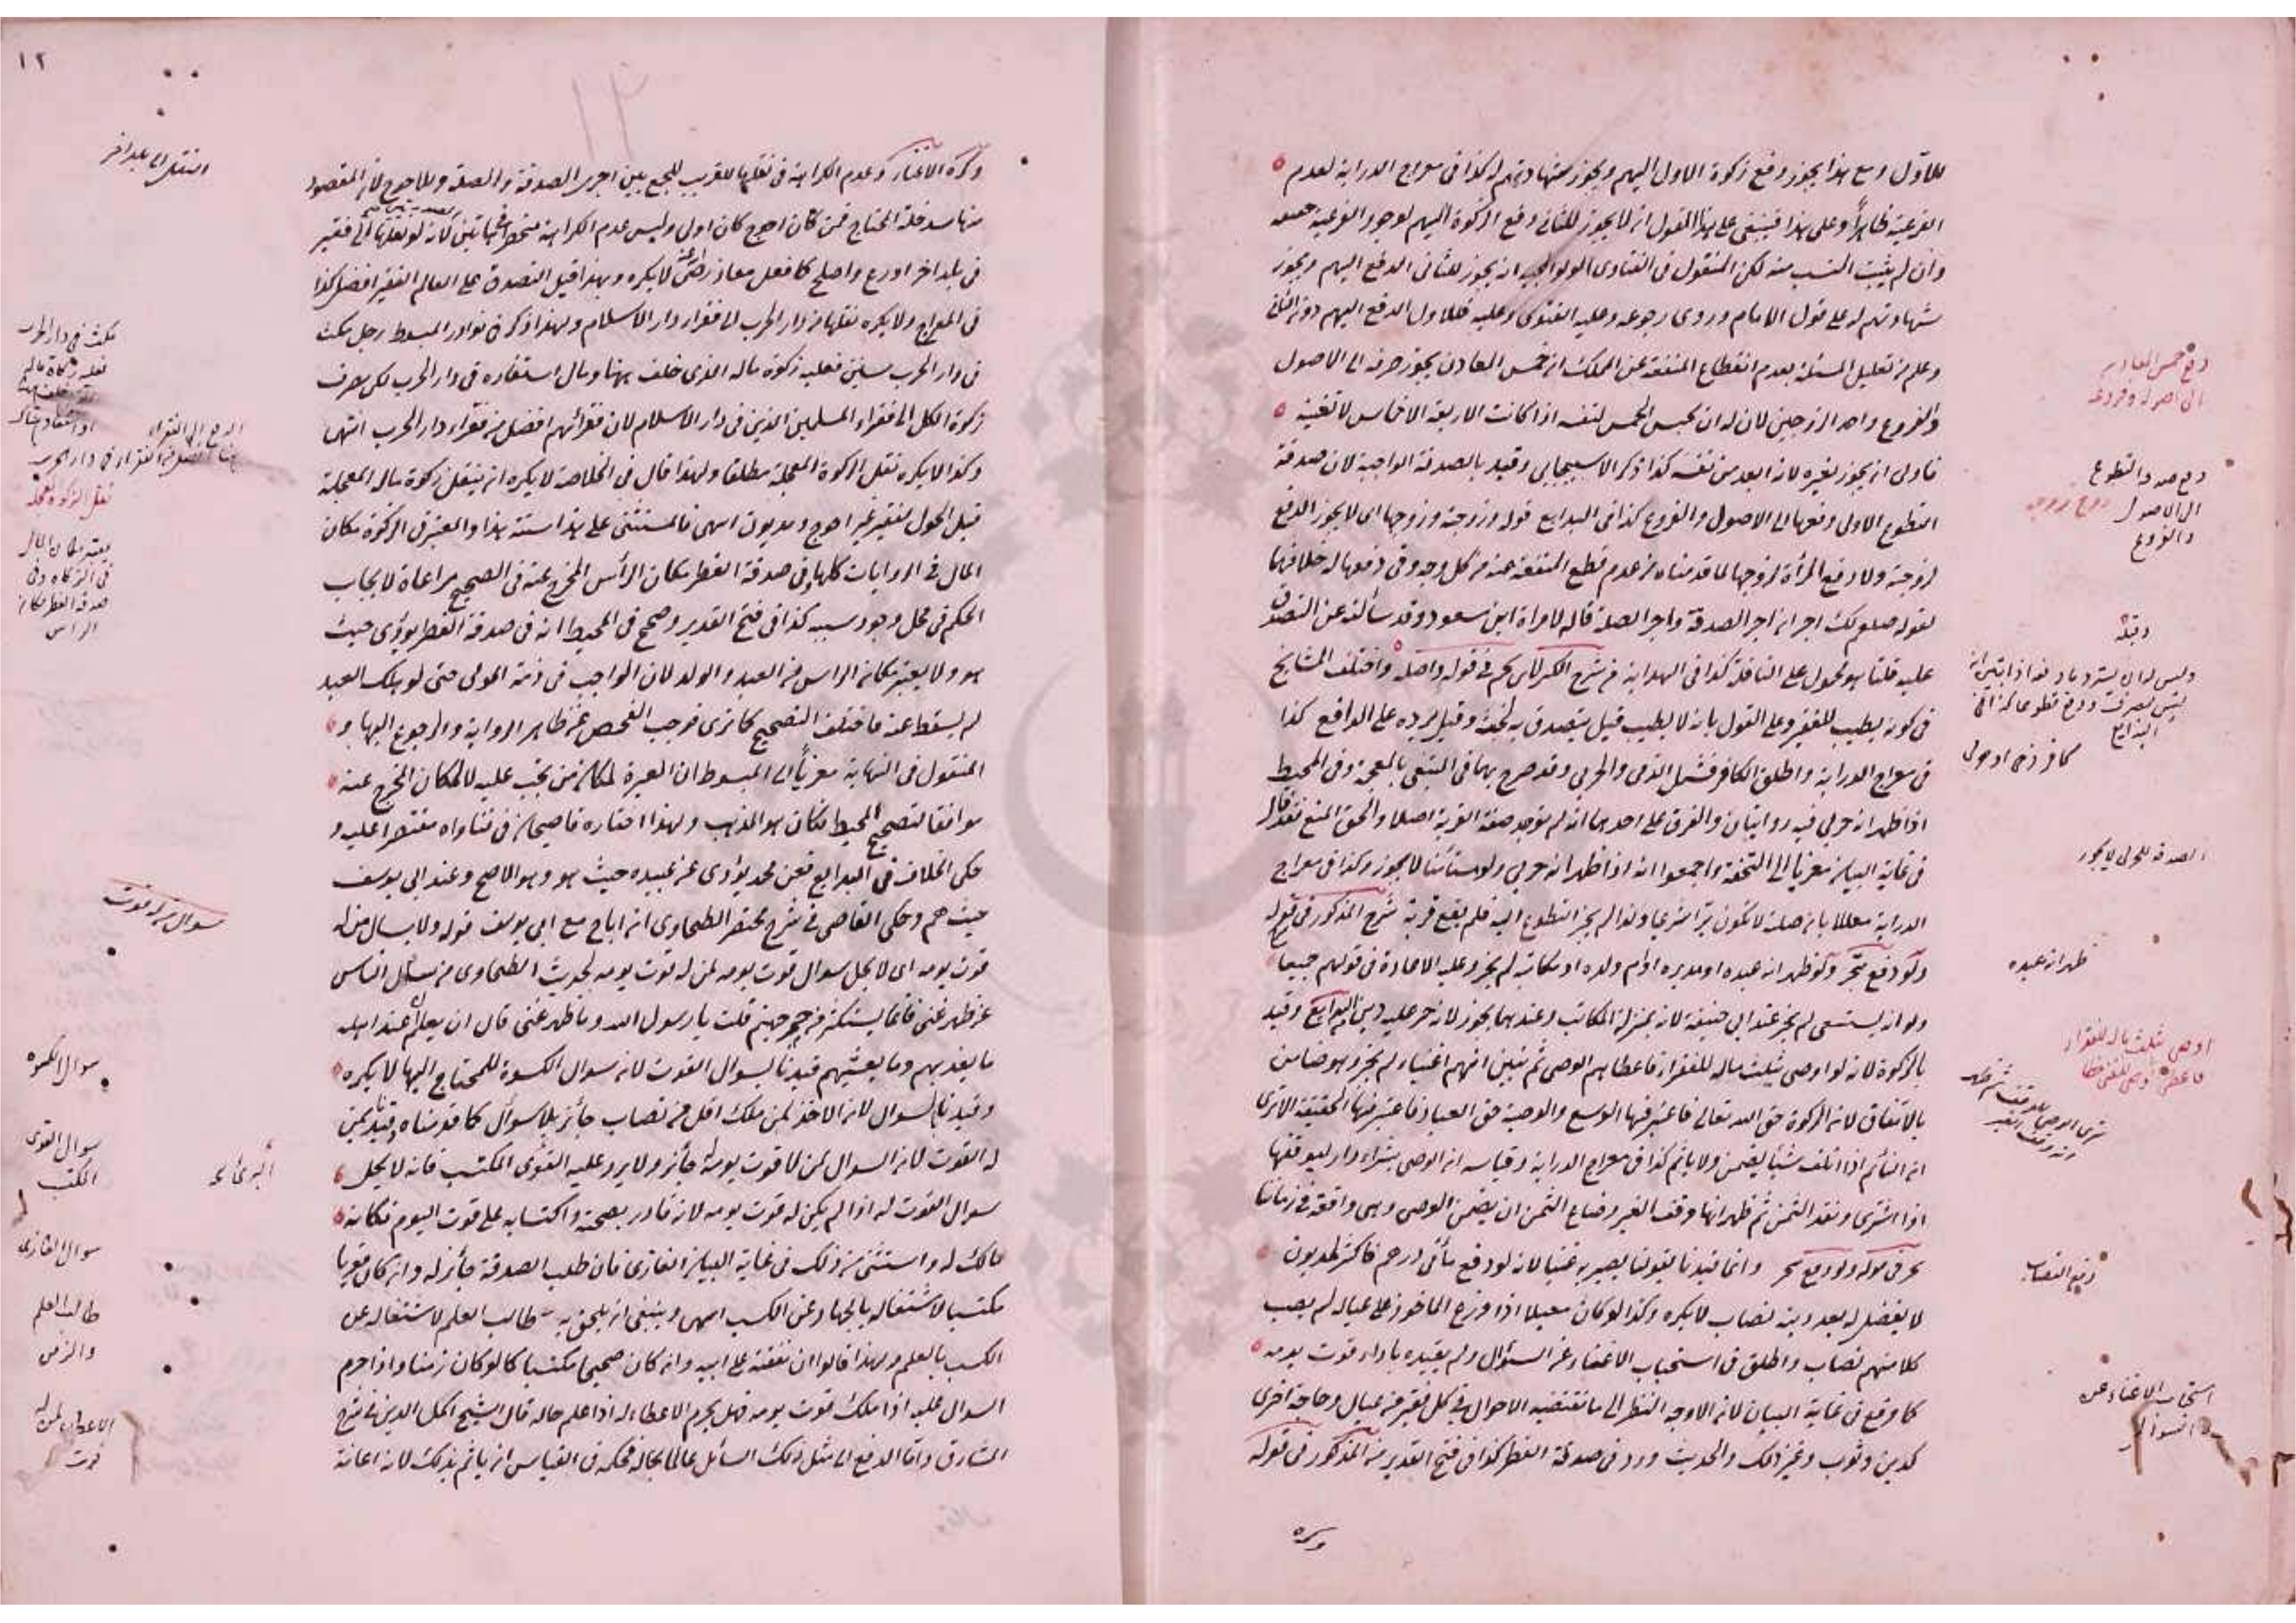 للاول ومع هذا يجوز دفع زكوة الاول اليهم ويجوز شهادتهم له كذا في معراج الدراية لعدم
الفرعية ظاهرا وعلى هذا فينبغي على هذا القول انه لا يجوز للثاني دفع الزكوة اليهم لوجود الفرعية حقيقة
وان لم يثبت النسب منه لكن المنقول في الفتاوى الولوالجية انه يجوز للثاني الدفع اليهم ويجوز
شهادتهم له على قول الامام وروى رجوعه وعليه الفتوى وعليه فللاول الدفع اليهم دون الثاني
وعلم من تعليل المسئلة بعدم انقطاع المنفعة عن المملك ان خمس المعادن يجوز صرفه الى الاصول
والفروع واحد الزوجين لان له ان يحبس الخمس لنفسه اذا كانت الاربعة الاخماس لا تغنيه
فاولى ان يجوز بغيره لانه ابعد من نفسه كذا ذكر الاسبيجابي وقيد بالصدقة الواجبة لان صدقة
التطوع الاولى دفعها الى الاصول والفروع كذا في البدايع قوله وزوجته وزوجها اي لا يجوز الدفع
لزوجته ولا دفع المرأة لزوجها لما قدمناه من عدم قطع المنفعة عنه من كل وجه وفي دفعها له خلافهما
لقوله صلعم لك اجران اجر الصدقة واجر الصلة قاله لامراة ابن مسعود وقد سألته عن التصدق
عليه قلنا هو محمول على النافلة كذا في الهداية في شرح الكنز واختلف المشايخ
في كونه يطيب للفقير وعلى القول بانه لا يطيب قيل يتصدق به لخبثه وقيل يرده على الدافع كذا
في معراج الدراية واطلق الكافر فشمل الذمي والحربي وقد صرح بهما في المبتغى بالمعجمة وفي المحيط
اذا ظهر انه حربي فيه روايتان والفرق على احدهما انه لم توجد صفة القربة اصلا والحق المنع فقد قال
في غاية البيان معزيا الى التحفة واجمعوا انه اذا ظهر انه حربي ولو مستأمنا لا يجوز وكذا في معراج
الدراية معللا بان صلته لا تكون برا شرعا ولذا لم يجز التطوع اليه فلم يقع قربة شرح المذكور في قوله
ولو دفع بتحر ولو ظهر انه عبده او مدبره او ام ولده او مكاتبه لم يجز وعليه الاعادة في قولهم جميعا
ولو انه يستسعى لم يجز عند ابي حنيفة لانه بمنزلة المكاتب وعندهما يجوز لانه حر عليه دين البدايع وقيد
بالزكوة لانه لو اوصى بثلث ماله للفقراء فاعطاهم الوصي ثم تبين انهم اغنياء لم يجز وهو ضامن
بالاتفاق لان الزكوة حق الله تعالى فاعتبر فيها الوسع والوصية حق العباد فاعتبر فيها الحقيقة الا ترى
ان النائم اذا اتلف شيئا يضمن ولا يأثم كذا في معراج الدراية وقياسه ان الوصي بشراء دار ليوقفها
اذا اشترى ونقد الثمن ثم ظهر انها وقف الغير وضاع الثمن ان يضمن الوصي وهي واقعة في زماننا
بحر في قوله ولو دفع بتحر وانما قيدنا بقولنا يصير به غنيا لانه لو دفع مأتي درهم فاكثر لمديون
لا يفضل له بعد دينه نصاب لا يكره وكذا لو كان معيلا اذا وزع المأخوذ على عياله لم يصب
كلا منهم نصاب واطلق في استحباب الاغناء عن السؤال ولم يقيده باداء قوت يومه
كما وقع في غاية البيان لان الاوجه النظر الى ما تقتضيه الاحوال في كل فقير من عيال وحاجة اخرى
كدين وثوب وغير ذلك والحديث ورد في صدقة الفطر كذا في فتح القدير من المذكور في قوله
وكره
دفع خمس المعادن
الى اصوله وفروعه
دفع صدقة التطوع
الى الاصول
والفروع
كافر ذمي او حربي
الصدقة للحربي لا يجوز
ظهر انه عبده
اوصى بثلث ماله للفقراء
دفع النصاب
استحباب الاغناء عن
السؤال
١٢
وكره الاغناء وعدم الكراهة في نقلها للقريب للجمع بين اجرى الصدقة والصلة وللاحوج لان المقصود
منها سد خلة المحتاج فمن كان احوج كان اولى وليس عدم الكراهة منحصرا في هاتين لانه لو نقلها الى فقير
في بلد اخر اورع واصلح كما فعل معاذ رضى عنه لا يكره وبهذا قيل التصدق على العالم الفقير افضل كذا
في المعراج ولا يكره نقلها من دار الحرب الى فقراء دار الاسلام ولهذا ذكر في نوادر المبسوط رجل مكث
في دار الحرب سنين فعليه زكوة ماله الذي خلف ههنا ومال استفاده في دار الحرب لكن يصرف
زكوة الكل الى فقراء المسلمين الذين في دار الاسلام لان فقرائهم افضل من فقراء دار الحرب انتهى
وكذا لا يكره نقل الزكوة المعجلة مطلقا ولهذا قال في الخلاصة لا يكره ان ينقل زكوة ماله المعجلة
قبل الحول لفقير غير احوج ومديون انتهى فالمستثنى على هذا ستة هذا والمعتبر في الزكوة مكان
المال في الروايات كلها وفي صدقة الفطر مكان الرأس المخرج عنه في الصحيح مراعاة لايجاب
الحكم في محل وجود سببه كذا في فتح القدير وصحح في المحيط انه في صدقة الفطر يؤدي حيث
هو ولا يعتبر مكان الراس من العبد والولد لان الواجب في ذمة المولى حتى لو هلك العبد
لم يسقط عنه فاختلف التصحيح كما ترى فوجب الفحص عن ظاهر الرواية والرجوع اليها و
المنقول في النهاية معزيا الى المبسوط ان العبرة لمكان من تجب عليه لا لمكان المخرج عنه
موافقا لتصحيح المحيط فكان هو المذهب ولهذا اختاره قاضيخان في فتاواه مقتصرا عليه و
حكى الخلاف في البدايع فعن محمد يؤدي عن عبيده حيث هو وهو الاصح وعند ابي يوسف
حيث هم وحكى القاضي في شرح مختصر الطحاوي ان ابا ح مع ابي يوسف قوله ولا يسال من له
قوت يومه اي لا يحل سوال قوت يومه لمن له قوت يومه لحديث الطحاوي من سأل الناس
عن ظهر غنى فانما يستكثر من جمر جهنم قلت يا رسول الله وما ظهر غنى قال ان يعلم ان عند اهله
ما يغديهم وما يعشيهم قيدنا بسوال القوت لان سوال الكسوة للمحتاج اليها لا يكره
وقيدنا بالسوال لان الاخذ لمن ملك اقل من نصاب جائز بلا سوال كما قدمناه وقيد بمن
له القوت لان السوال لمن لا قوت يومه له جائز ولا يرد عليه القوي المكتسب فانه لا يحل
سوال القوت له اذا لم يكن له قوت يومه لانه قادر بصحته واكتسابه على قوت اليوم فكانه
مالك له واستثنى من ذلك في غاية البيان الغازي فان طلب الصدقة جائز له وان كان قويا
مكتسبا لاشتغاله بالجهاد عن الكسب انتهى وينبغي ان يلحق به طالب العلم لاشتغاله عن
الكسب بالعلم ولهذا قالوا ان نفقته على ابيه وان كان صحيحا مكتسبا كما لو كان زمنا واذا حرم
السوال عليه اذا ملك قوت يومه فهل يحرم الاعطاء له اذا علم حاله قال الشيخ اكمل الدين في شرح
المشارق واما الدفع الى مثل ذلك السائل عالما بحاله فحكمه في القياس ان يأثم بذلك لانه اعانة
النقل الى بلد اخر
مكث في دار الحرب
نقل الزكوة المعجلة
يعتبر مكان المال
في الزكاة وفي
صدقة الفطر مكان
الراس
سوال من له قوت
سوال الكسوة
سوال القوي
المكتسب
سوال الغازي
طالب العلم
والزمن
الاعطاء لمن له
قوت